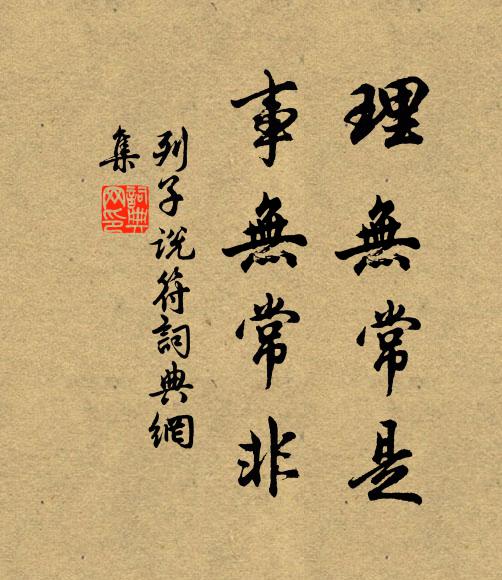 理無常是
事無常非
列子說符詞典網
集
詞典
网印